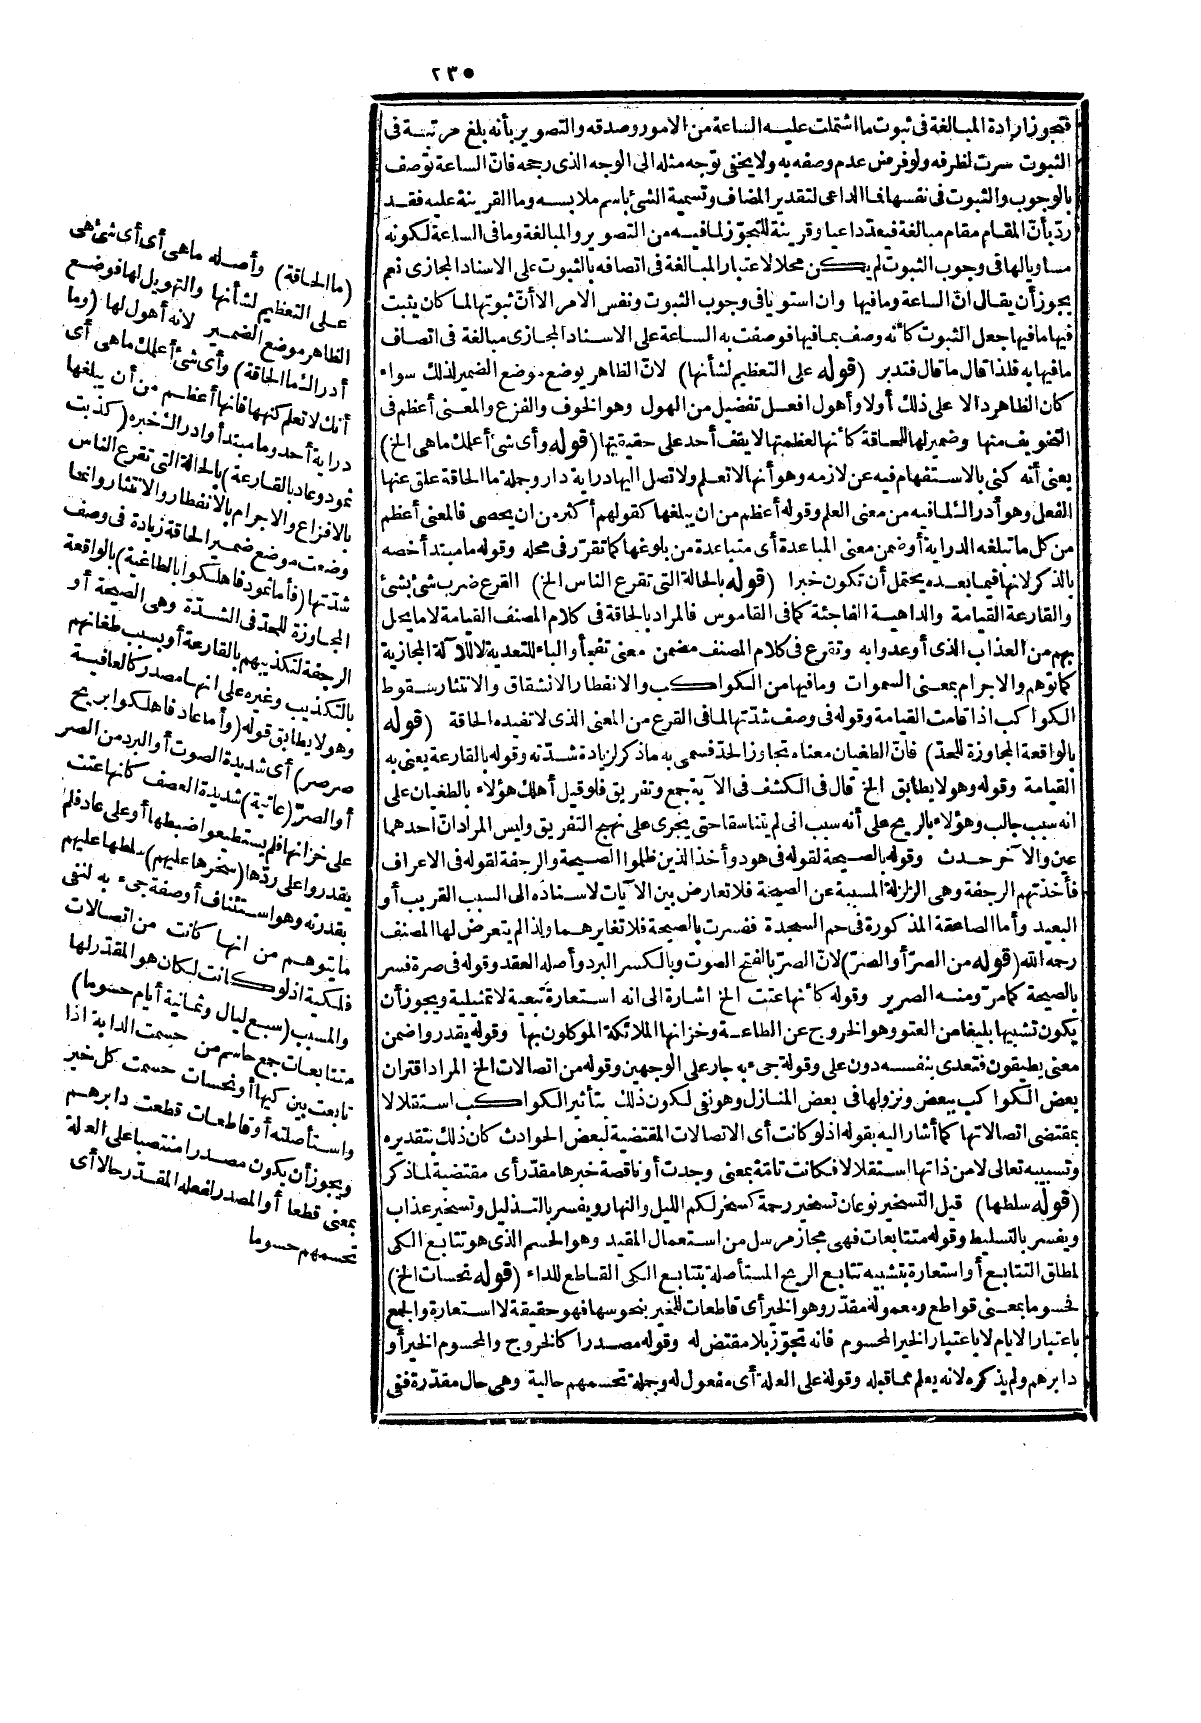 ٢٣٥
فتجوز ارادة المبالغة فى ثبوت ما اشتملت عليه الساعة من الامور وصدقه والتصوير بأنه بلغ مرتبة فى
الثبوت سرت لظرفه ولو فرض عدم وصفه به ولا يخفى توجه مثله الى الوجه الذى رجحه فانّ الساعة توصف
بالوجوب والثبوت فى نفسها فما الداعى لتقدير المضاف وتسمية الشئ باسم ملابسه وما القرينة عليه فقد
ردّ بأنّ المقام مقام مبالغة فيعدّ داعيا وقرينة للتجوّز لما فيه من التصوير والمبالغة وما فى الساعة لكونه
مساويا لها فى وجوب الثبوت لم يكن محلا لاعتبار المبالغة فى اتصافه بالثبوت على الاسناد المجازى نعم
يجوز أن يقال انّ الساعة وما فيها وان استويا فى وجوب الثبوت ونفس الامر الا أنّ ثبوتها لما كان يثبت
فيها ما فيها جعل الثبوت كأنه وصف بما فيها فوصفت به الساعة على الاسناد المجازى مبالغة فى اتصاف
ما فيها به فلذا قال ما قال فتدبر (قوله على التعظيم لشأنها) لانّ الظاهر يوضع موضع الضمير لذلك سواء
كان الظاهر دالا على ذلك أو لا وأهول افعل تفضيل من الهول وهو الخوف والفزع والمعنى أعظم فى
التخويف منها وضمير لها للحاقة كأنها لعظمتها لا يقف أحد على حقيقتها (قوله وأى شئ أعلمك ما هى الخ)
يعنى أنه كنى بالاستفهام فيه عن لازمه وهو أنها لا تعلم ولا تصل اليها دراية دار وجملة ما الحاقة علق عنها
الفعل وهو أدراك لما فيه من معنى العلم وقوله أعظم من ان يبلغها كقولهم أكثر من ان يحصى فالمعنى أعظم
من كل ما تبلغه الدراية أو ضمن معنى المباعدة أى متباعدة من بلوغها كما تقرّر فى محله وقوله ما مبتدأ خصه
بالذكر لانها فيما بعده يحتمل أن تكون خبرا (قوله بالحالة التى تقرع الناس الخ) القرع ضرب شئ بشئ
والقارعة القيامة والداهية الفاجئة كما فى القاموس فالمراد بالحاقة فى كلام المصنف القيامة لا ما يحل
بهم من العذاب الذى أوعدوا به وتقرع فى كلام المصنف مضمن معنى تفجأ والباء للتعدية لا للآلة المجازية
كما توهم والاجرام بمعنى السموات وما فيها من الكواكب والانفطار الانشقاق والانتثار سقوط
الكواكب اذا قامت القيامة وقوله فى وصف شدّتها لما فى القرع من المعنى الذى لا تفيده الحاقة (قوله
بالواقعة المجاوزة للحدّ) فانّ الطغيان معناه تجاوز الحدّ فسمى به ما ذكر لزيادة شدّته وقوله بالقارعة يعنى به
القيامة وقوله وهو لا يطابق الخ قال فى الكشف فى الآية جمع وتفريق فلو قيل أهلك هؤلاء بالطغيان على
انه سبب جالب وهؤلاء بالريح على أنه سبب آلى لم يتناسقا حتى يجرى على نهج التفريق وليس المراد انّ احدهما
عين والآخر حدث وقوله بالصيحة لقوله فى هود وأخذ الذين ظلموا الصيحة والرجفة لقوله فى الاعراف
فأخذتهم الرجفة وهى الزلزلة المسببة عن الصيحة فلا تعارض بين الآيات لاسناده الى السبب القريب أو
البعيد وأما الصاعقة المذكورة فى حم السجدة ففسرت بالصيحة فلا تغايرهما ولذا لم يتعرض لها المصنف
رحمه الله (قوله من الصرّ أو الصرّ) لانّ الصرّ بالفتح الصوت وبالكسر البرد وأصله العقد وقوله فى صرة فسر
بالصيحة كما مرّ ومنه الصرير وقوله كأنها عتت الخ اشارة الى انه استعارة تبعية لا تمثيلية ويجوز أن
يكون تشبيها بليغا من العتو وهو الخروج عن الطاعة وخزانها الملائكة الموكلون بها وقوله يقدروا ضمن
معنى يطيقون فتعدى بنفسه دون على وقوله جىء به جار على الوجهين وقوله من اتصالات الخ المراد اقتران
بعض الكواكب ببعض ونزولها فى بعض المنازل وهو نفى لكون ذلك بتأثير الكواكب استقلالا
بمقتضى اتصالاتها كما أشار اليه بقوله اذ لو كانت أى الاتصالات المقتضية لبعض الحوادث كان ذلك بتقديره
وتسبيبه تعالى لا من ذاتها استقلالا فكانت تامّة بمعنى وجدت أو ناقصة خبرها مقدّر أى مقتضية لما ذكر
(قوله سلطها) قيل التسخير نوعان تسخير رحمة كسخر لكم الليل والنهار ويفسر بالتذليل وتسخير عذاب
ويفسر بالتسليط وقوله متتابعات فهى مجاز مرسل من استعمال المقيد وهو الحسم الذى هو تتابع الكى
لمطلق التتابع أو استعارة بتشبيه تتابع الريح المستأصلة بتتابع الكى القاطع للداء (قوله نحسات الخ)
فحسوما بمعنى قواطع ومعموله مقدّر وهو الخير أى قاطعات للخير بنحوسها فهو حقيقة لا استعارة والجمع
باعتبار الايام لا باعتبار الخير المحسوم فانه تجوّز بلا مقتض له وقوله مصدرا كالخروج والمحسوم الخير أو
دابرهم ولم يذكره لانه يعلم مما قبله وقوله على العلة أى مفعول له وجملة تحسمهم حالية وهى حال مقدّرة ففى
(ما الحاقة) وأصله ما هى أى أى شئ هى
على التعظيم لشأنها والتهويل لها فوضع
الظاهر موضع الضمير لانه أهول لها (وما
أدراك ما الحاقة) وأى شئ أعلمك ما هى أى
أنك لا تعلم كنهها فانها أعظم من أن يبلغها
دراية أحد وما مبتدأ وادراك خبره (كذبت
ثمود وعاد بالقارعة) بالحالة التى تقرع الناس
بالافزاع والاجرام بالانفطار والانتثار وانما
وضعت موضع ضمير الحاقة زيادة فى وصف
شدّتها (فأما ثمود فاهلكوا بالطاغية) بالواقعة
المجاوزة للحدّ فى الشدّة وهى الصيحة أو
الرجفة لتكذيبهم بالقارعة أو بسبب طغيانهم
بالتكذيب وغيره على انها مصدر كالعافية
وهو لا يطابق قوله (وأما عاد فاهلكوا بريح
صرصر) أى شديدة الصوت أو البرد من الصر
أو الصرّ (عاتية) شديدة العصف كأنها عتت
على خزانها فلم يستطيعوا ضبطها أو على عاد فلم
يقدروا على ردّها (سخرها عليهم) سلطها عليهم
بقدرته وهو استئناف أو صفة جىء به لنفى
ما يتوهم من انها كانت من اتصالات
فلكية اذ لو كانت لكان هو المقدّر لها
والمسبب (سبع ليال وثمانية أيام حسوما)
متتابعات جمع حاسم من حسمت الدابة اذا
تابعت بين كيها أو نحسات حسمت كل خير
واستأصلته أو قاطعات قطعت دابرهم
ويجوز أن يكون مصدرا منتصبا على العلة
بمعنى قطعا أو المصدر لفعله المقدّر حالا أى
تحسمهم حسوما